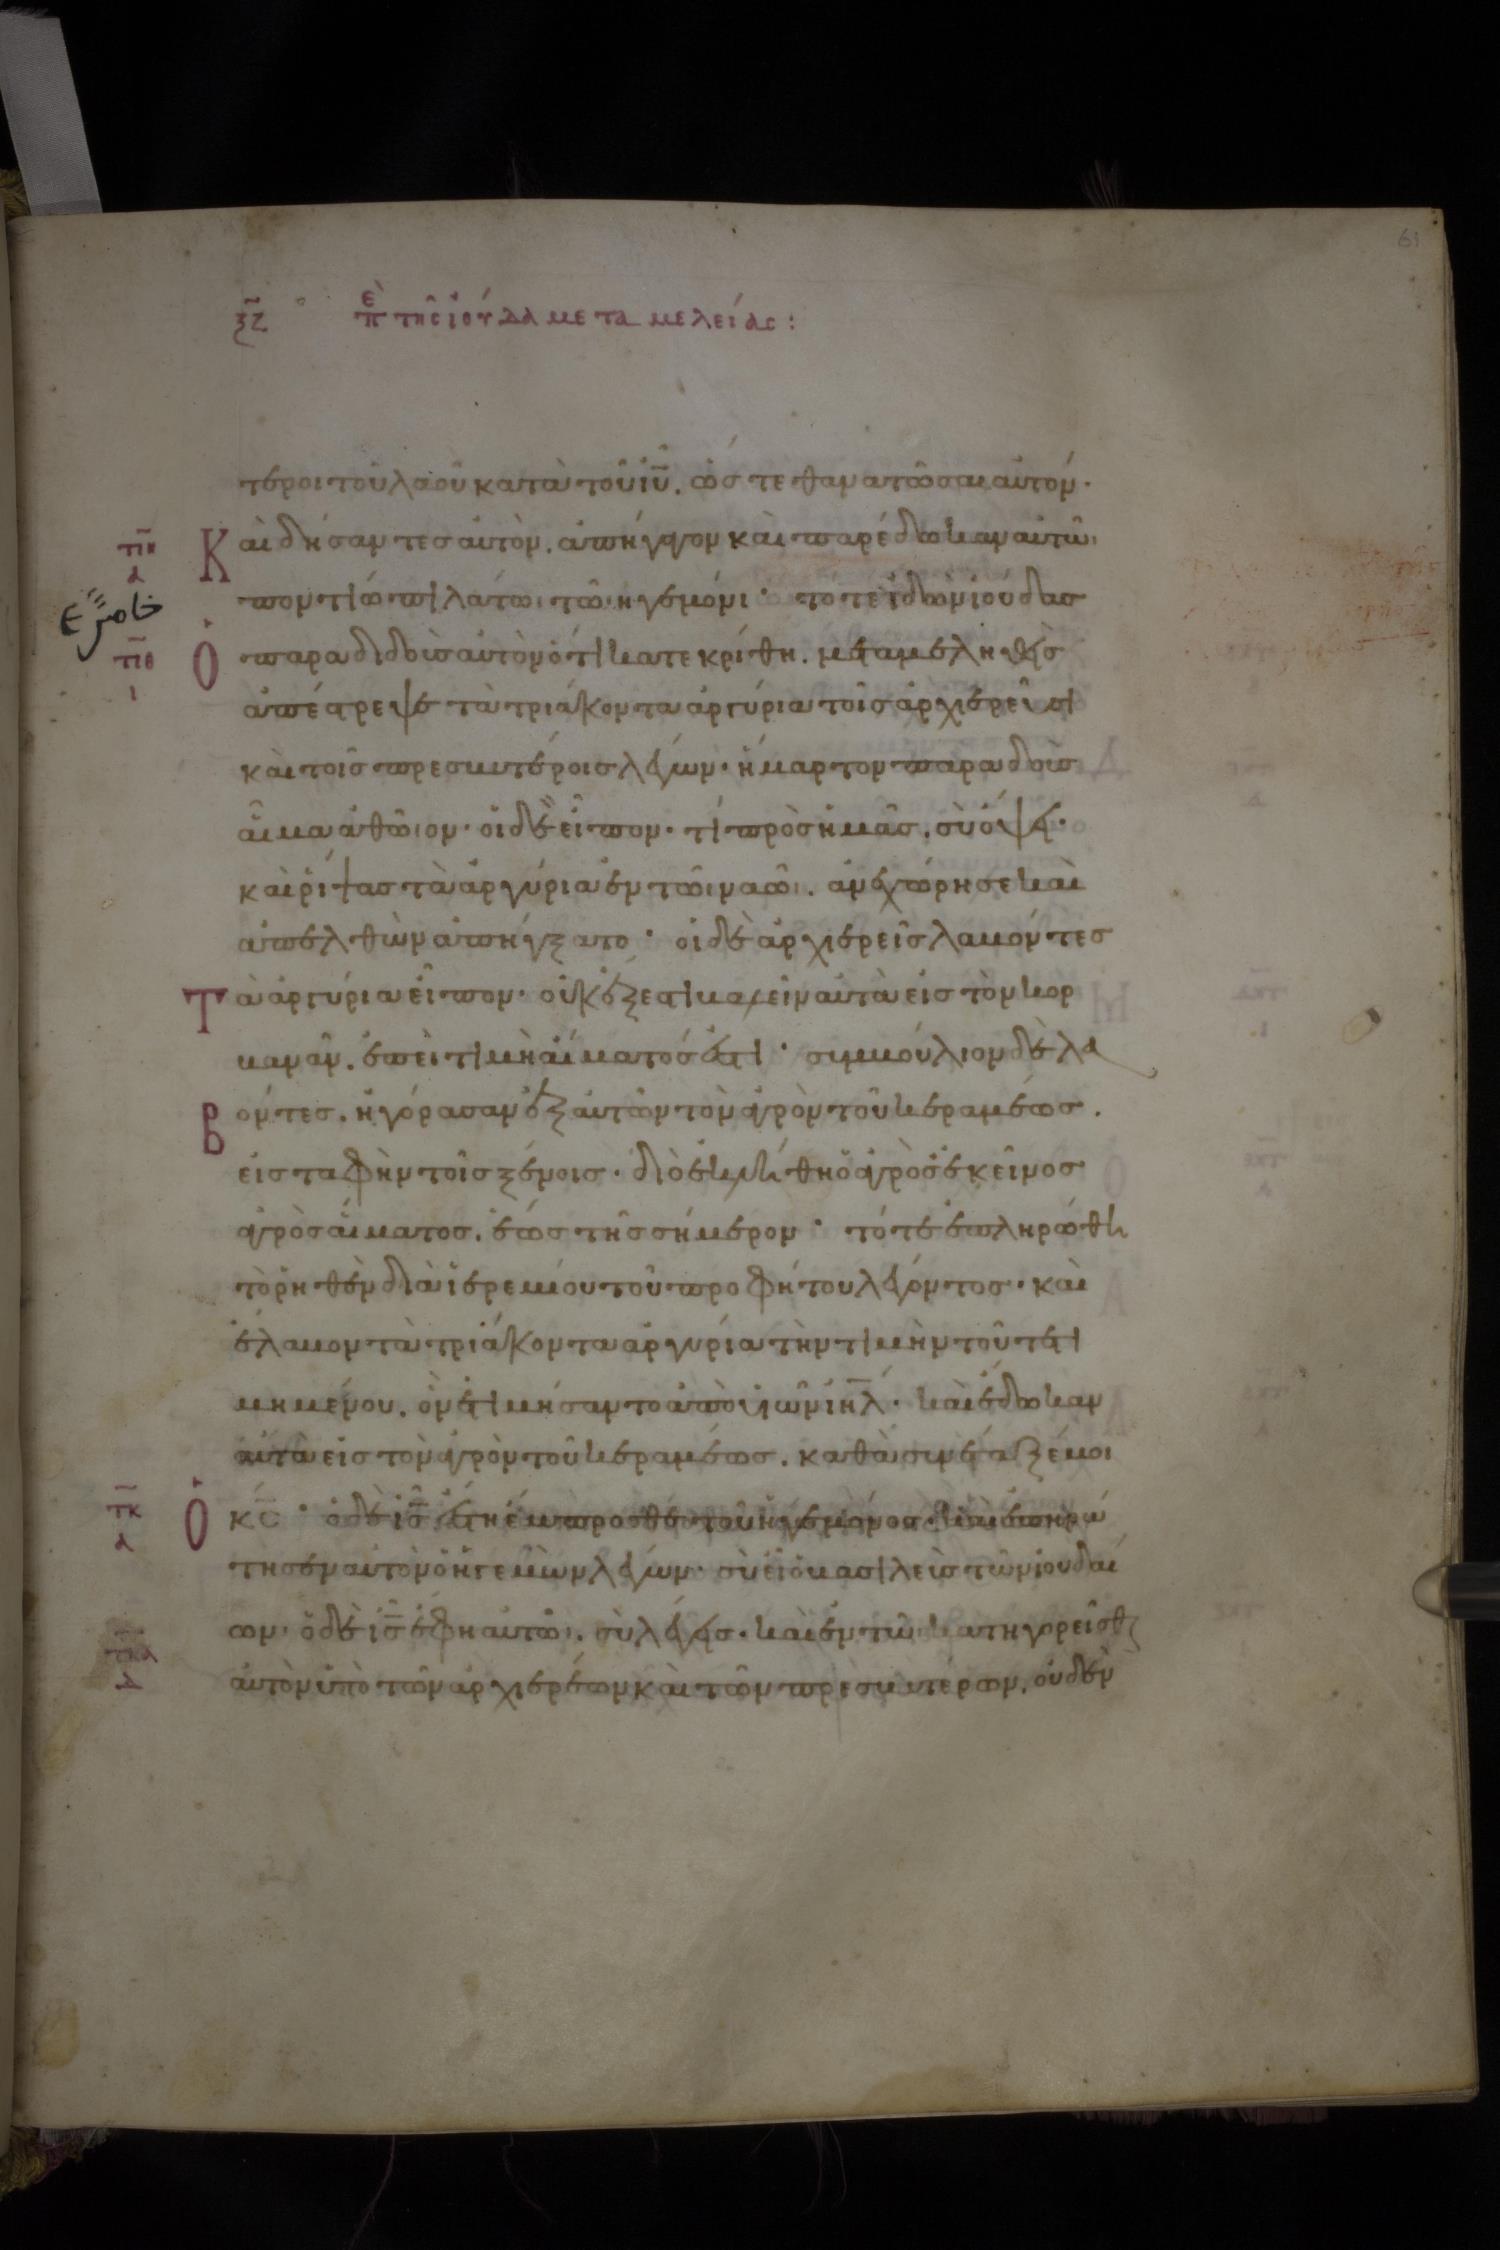 ξζ ἐπ τῆς ἰούδα μεταμελείας :
τέροι τοῦ λαοῦ κατὰ τοῦ ἰῦ. ὥστε θανατῶσαι αὐτόν·
τιη Καὶ δήσαντες αὐτὸν. ἀπήγαγον καὶ παρέδωκαν αὐτὸν
α
ποντίω πιλάτω τῶ ἡγεμόνι· τότε ἰδὼν ἰούδας
خامس
τιθ Ὁ παραδιδοὺς αὐτὸν ὅτι κατεκρίθη. μεταμεληθεὶς
ι
ἀπέστρεψε τὰ τριάκοντα ἀργύρια τοῖς ἀρχιερεῦσι
καὶ τοῖς πρεσβυτέροις λέγων· ἥμαρτον παραδοὺς
αἷμα ἀθῶιον· οἱ δὲ εἶπον· τί πρὸς ἡμᾶς. σὺ ὄψει·
καὶ ῥίψας τὰ ἀργύρια ἐν τῶι ναῶι. ἀνεχώρησε καὶ
ἀπελθὼν ἀπήγξατο· οἱ δὲ ἀρχιερεῖς λαβόντες
Τὰ ἀργύρια εἶπον· οὐκ ἔξεστι βαλεῖν αὐτὰ εἰς τὸν κορ
βανᾶν. ἐπεὶ τιμὴ αἵματός ἐστι· συμβούλιον δὲ λα
Βόντες. ἠγόρασαν ἐξ αὐτῶν τὸν ἀγρὸν τοῦ κεραμέως.
εἰς ταφὴν τοῖς ξένοις· διὸ ἐκλήθη ὁ ἀγρὸς ἐκεῖνος
ἀγρὸς αἵματος. ἕως τῆς σήμερον· τότε ἐπληρώθη
τὸ ῥηθὲν διὰ ἱερεμίου τοῦ προφήτου λέγοντος· καὶ
ἔλαβον τὰ τριάκοντα ἀργύρια τὴν τιμὴν τοῦ τετι
μημένου. ὃν ἐτιμήσαντο ἀπὸ υἱῶν ἰηλ· καὶ ἔδωκαν
αὐτὰ εἰς τὸν ἀγρὸν τοῦ κεραμέως. καθὰ συνέταξέ μοι
τκ Ὁ κς· ὁ δὲ ἰς ἔστη ἔμπροσθεν τοῦ ἡγεμόνος· καὶ ἐπηρώ
α
τησεν αὐτὸν ὁ ἡγεμὼν λέγων· σὺ εἶ ὁ βασιλεὺς τῶν ἰουδαί
ων· ὁ δὲ ἰς ἔφη αὐτῶ. σὺ λέγεις· καὶ ἐν τῶ κατηγορεῖσθαι
τκα
δ
αὐτὸν ὑπὸ τῶν ἀρχιερέων καὶ τῶν πρεσβυτέρων. οὐδὲν
61